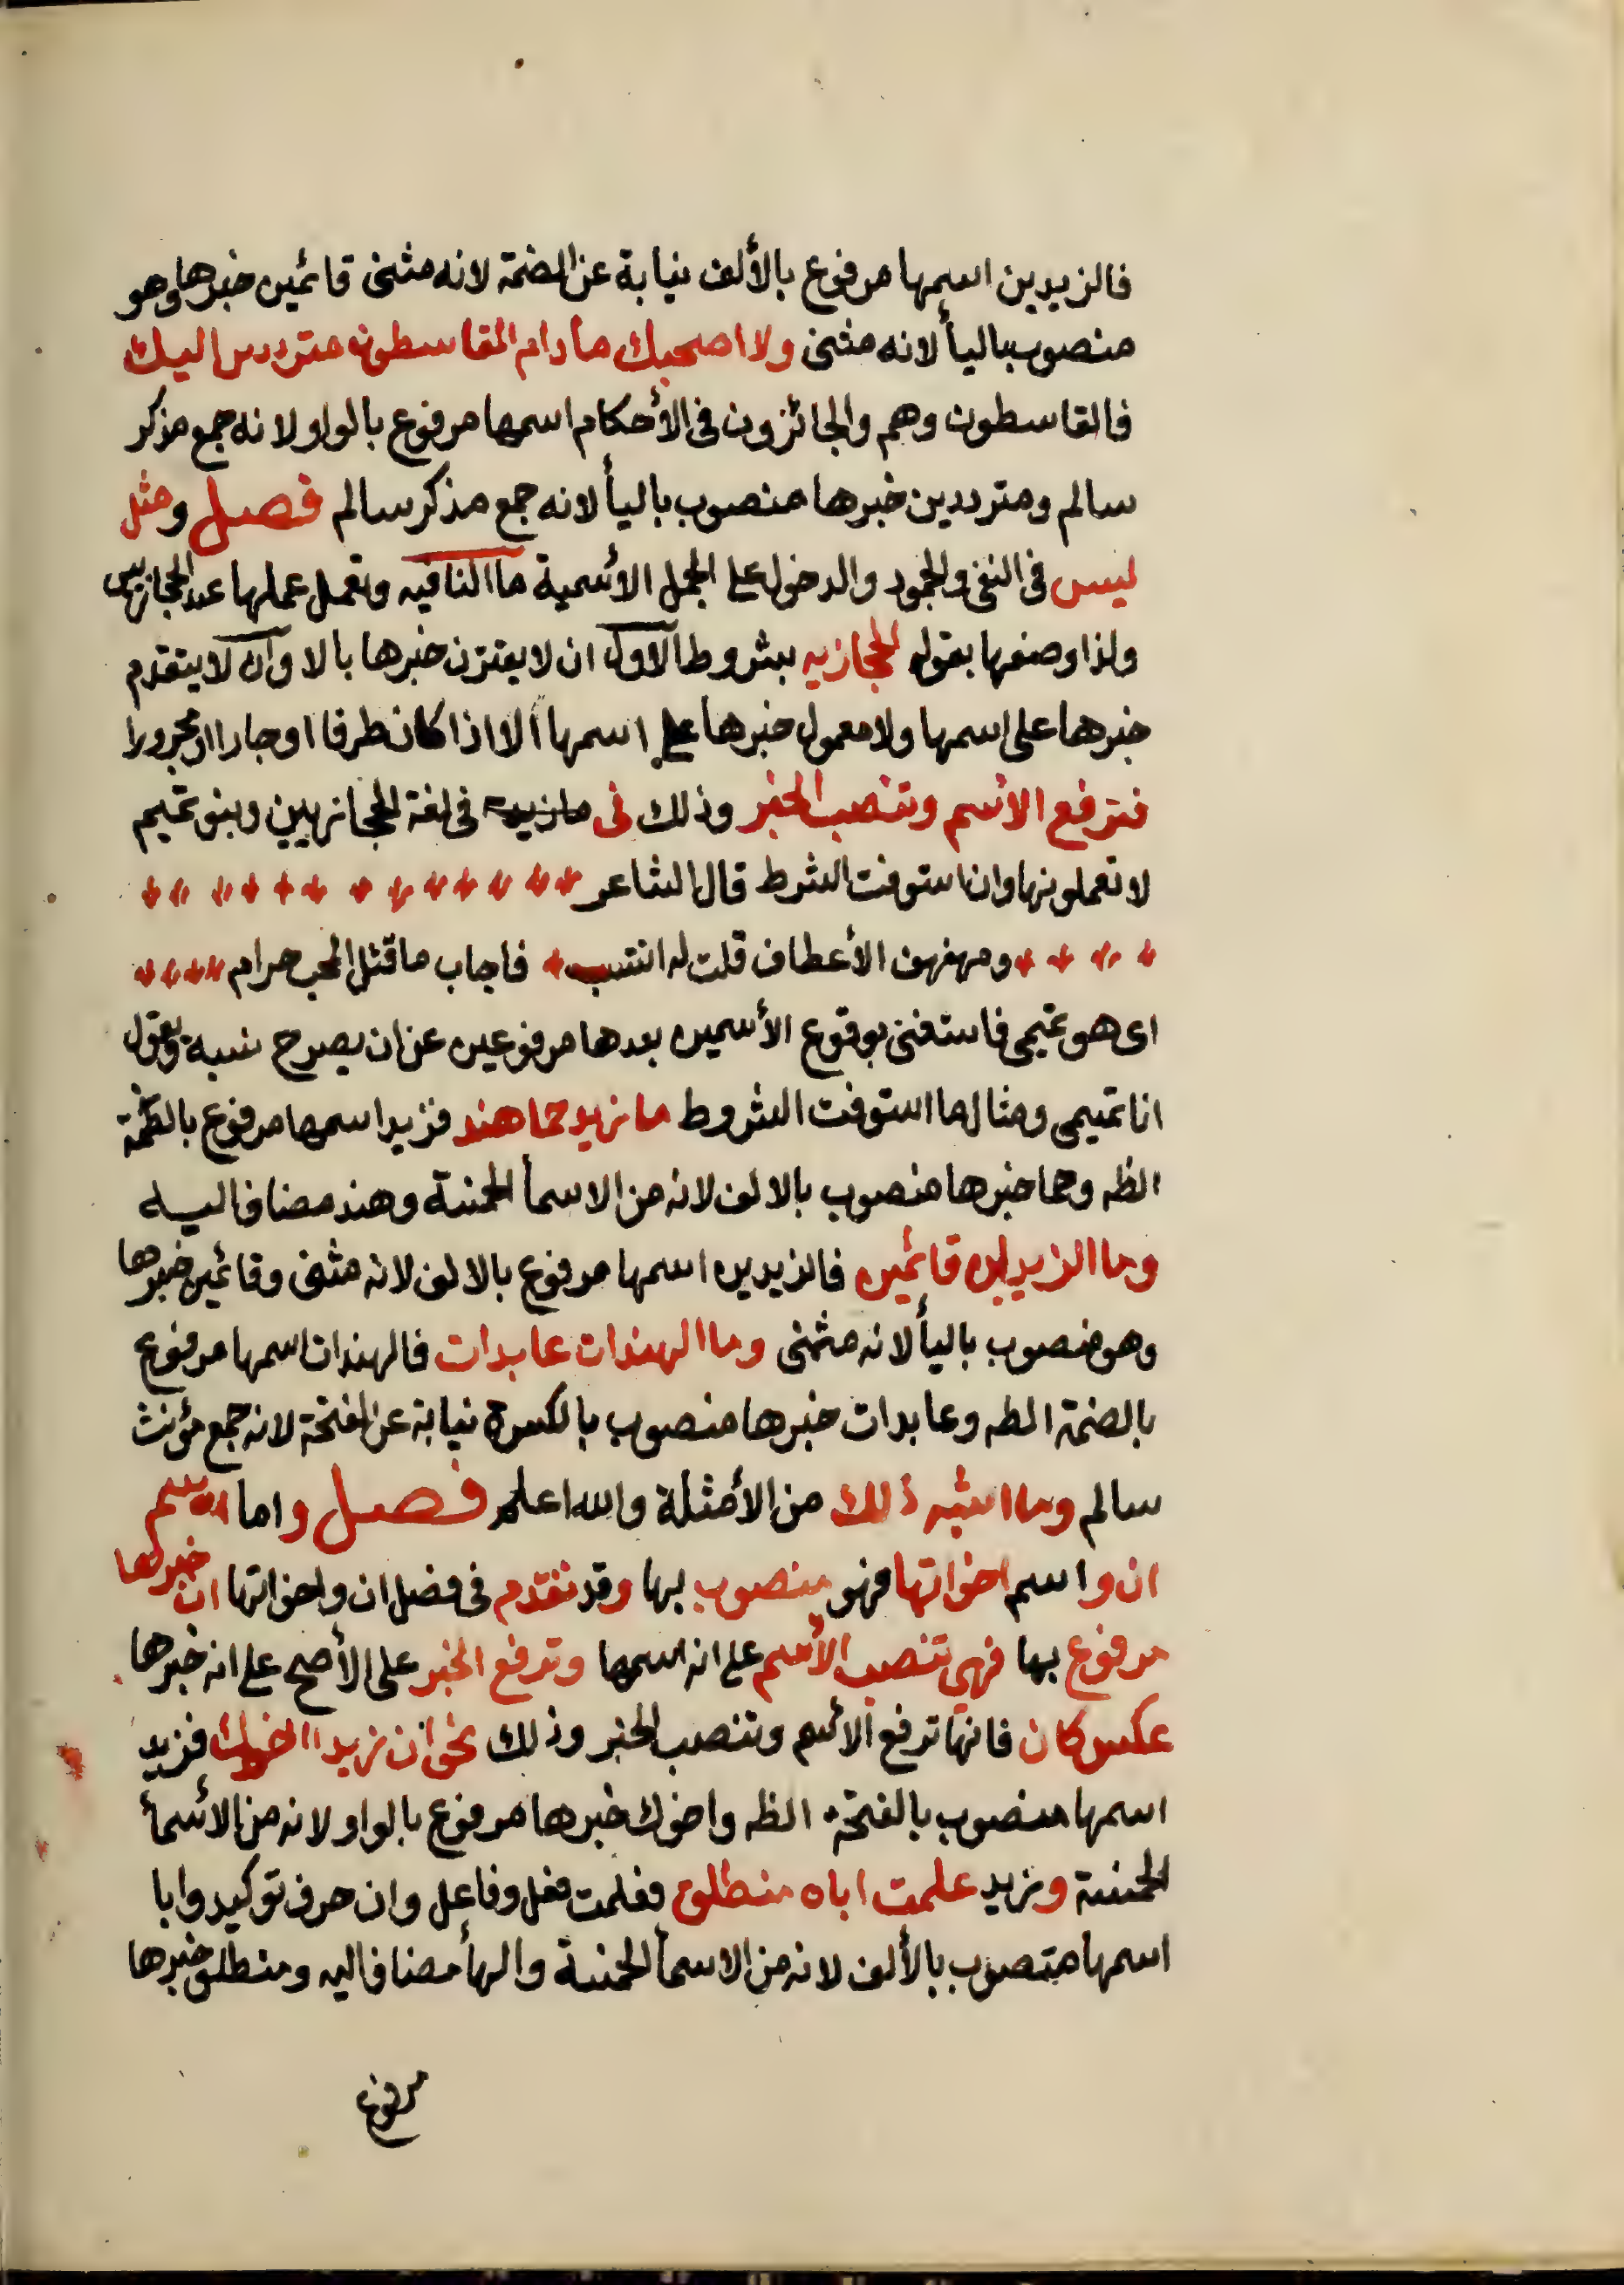 فالزيدين اسمها مرفوع بالألف نيابة عن الضمة لانه مثنى قائمين خبرها وهو
منصوب باليأ لانه مثنى ولا اصحبك مادام القاسطون مترددين اليك
فالقاسطون وهم والجائزون فى الأحكام اسمها مرفوع بالواو لانه جمع مذكر
سالم ومترددين خبرها منصوب باليأ لانه جمع مذكر سالم فصل ومثل
ليس فى النفى والجمود والدخول على الجمل الأسمية ما النافيه وتعمل عملها عند الحجازيين
ولذا وصفها بقوله الحجازيه بشروط الاول ان لا يقترن خبرها بالا وان لا يتقدم
خبرها على اسمها ولا معمول خبرها على اسمها الا اذا كان ظرفا او جارا او مجرورا
فترفع الأسم وتنصب الخبر وذلك فى ما زيد فى لغة الحجازيين وبنو تميم
لا تعملونها وان استوفت الشرط قال الشاعر
ومهفهف الأعطاف قلت له انتسب فاجاب ما قتل المحب حرام
اى هو تميمى فاستغنى بوقوع الأسمين بعدها مرفوعين عن ان يصرح نسبه ويقول
انا تميمى ومثال ما استوفت الشروط ما زيد حما هند فزيد اسمها مرفوع بالضمة
الظه وحما خبرها منصوب بالالف لانه من الاسمأ الخمسة وهند مضاف اليه
وما الزيدين قائمين فالزيدين اسمها مرفوع بالالف لانه مثنى وقائمين خبرها
وهو منصوب باليأ لانه مثنى وما الهندات عابدات فالهندات اسمها مرفوع
بالضمة الظه وعابدات خبرها منصوب بالكسرة نيابة عن الفتحة لانه جمع مؤنث
سالم وما اشبه ذلك من الأمثلة والله اعلم فصل واما اسم
ان واسم اخواتها فهو منصوب بها وقد تقدم فى فصل ان واخواتها ان خبرها
مرفوع بها فهى تنصب الأسم على انه اسمها وترفع الخبر على الأصح على انه خبرها
عكس كان فانها ترفع الأسم وتنصب الخبر وذلك نحو ان زيدا اخوك فزيد
اسمها منصوب بالفتحة الظه واخوك خبرها مرفوع بالواو لانه من الأسمأ
الخمسة وزيد علمت اباه منطلق فعلمت فعل وفاعل وان حرف توكيد وابا
اسمها منصوب بالألف لانه من الاسمأ الخمسة والهأ مضاف اليه ومنطلق خبرها
مرفوع